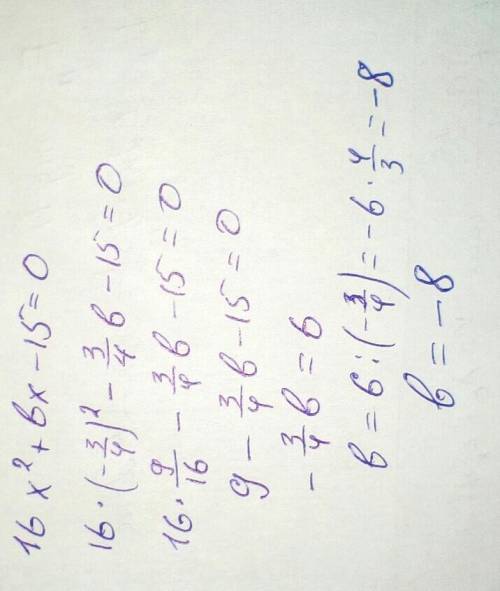 16x² + bx - 15 = 0
16·(-3/4)² - 3/4 b - 15 = 0
16·9/16 - 3/4 b - 15 = 0
9 - 3/4 b - 15 = 0
-3/4 b = 6
b = 6:(-3/4) = -6·4/3 = -8
b = -8